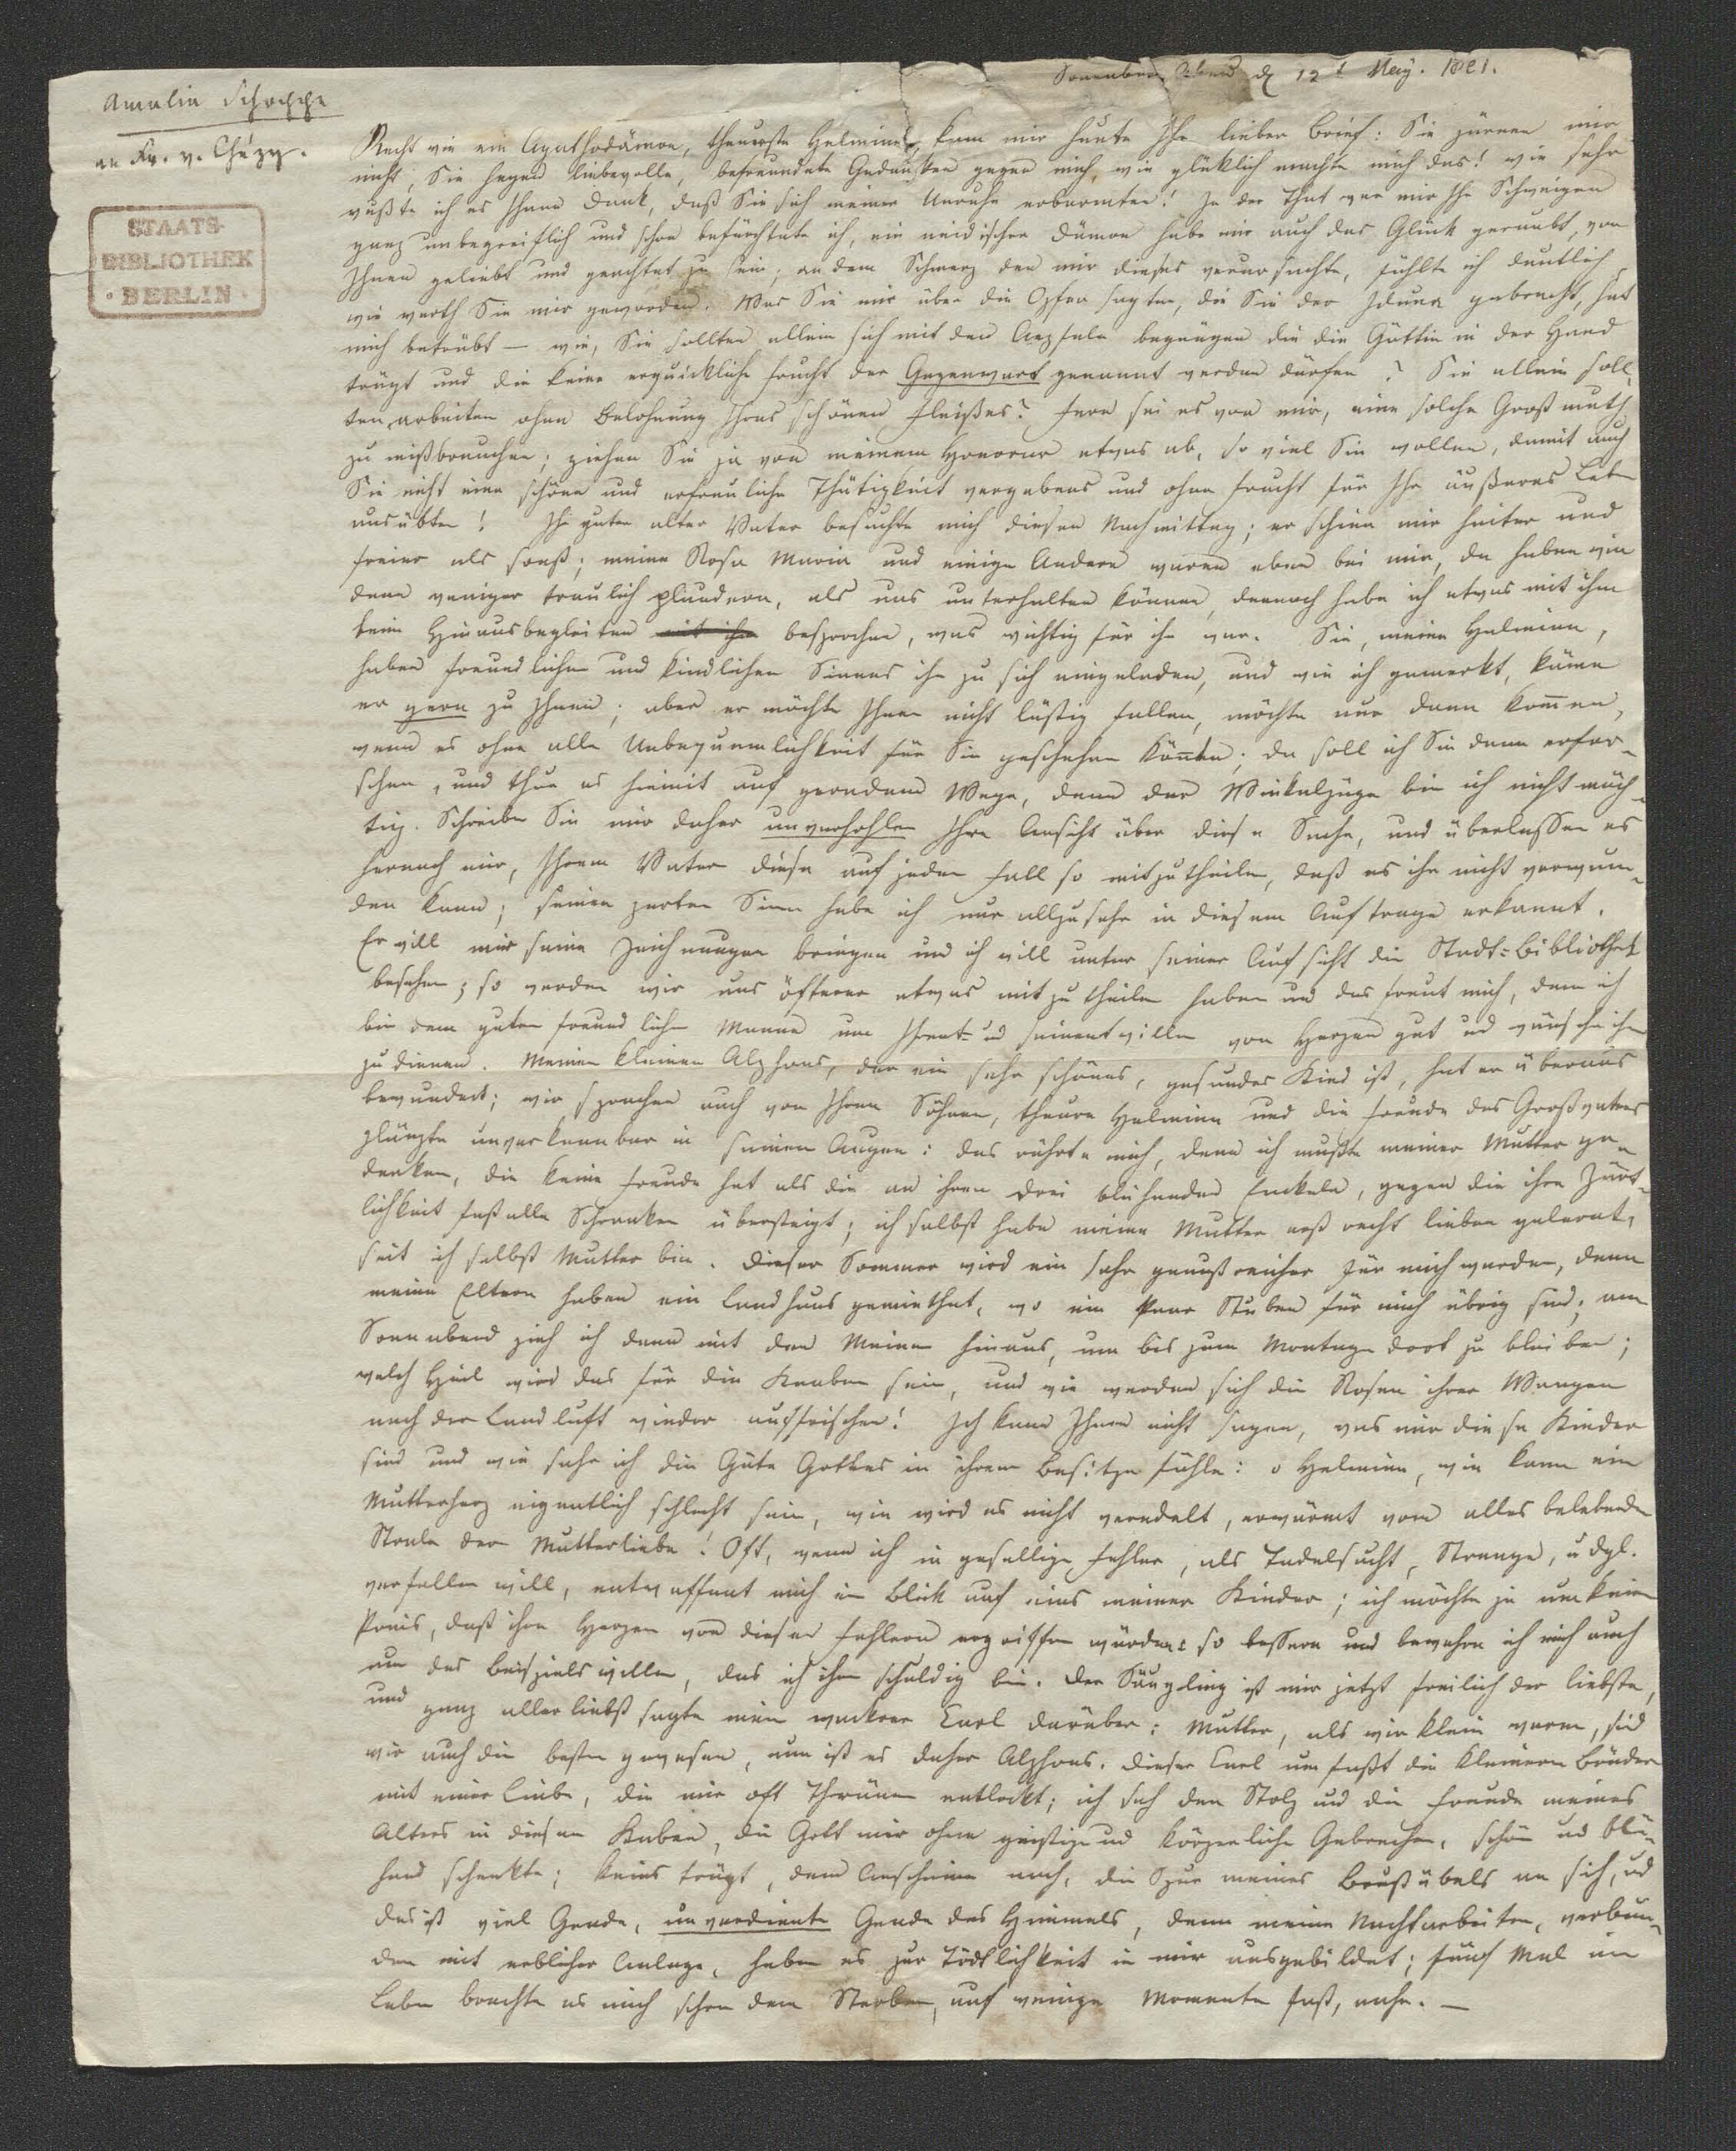 Amalia Schoppe
an Fr. v. Chézy.
STAATS-
BIBLIOTHEK
BERLIN
Sonnabend Abend d 12t May. 1821.
Recht wie ein Agathodämon, theuerste Helmina, kam mir heute Ihr lieber Brief: Sie zürnen mir
nicht, Sie hegen liebevolle, befreundete Gedanken gegen mich, wie glüklich machte mich das! wie sehr
wußte ich es Ihnen Dank, daß Sie sich meiner Unruhe erbarmten! In der That war mir Ihr Schweigen
ganz unbegreiflich und schon befürchtete ich, ein neidischer Dämon habe mir auch das Glük geraubt, von
Ihnen geliebt und geachtet zu sein; an dem Schmerz den mir dieses verursachte, fühlte ich deutlich
wie werth Sie mir geworden. Was Sie mir über die Opfer sagten, die Sie der Iduna gebracht, hat
mich betrübt — wie, Sie sollten allein sich mit den Aepfeln begnügen die die Göttin in der Hand
trägt und die keine erquickliche Frucht der Gegenwart genannt werden dürfen? Sie allein soll-
ten arbeiten ohne Belohnung Ihres schönen Fleißes? Fern sei es von mir, eine solche Großmuth
zu mißbrauchen; ziehen Sie ja von meinem Honorar etwas ab, so viel Sie wollen, damit auch
Sie nicht eine schöne und erfreuliche Thätigkeit vergebens und ohne Frucht für Ihr äußeres Leben
ausübten! Ihr guter alter Vater besuchte mich diesen Nachmittag; er schien mir heiter und
freier als sonst; meine Rosa Maria und einige Andere waren eben bei mir, da haben wir
denn weniger traulich plaudern, als uns unterhalten können, dennoch habe ich etwas mit ihm
beim Hinausbegleiten mit ihm besprochen, was wichtig für ihn war. Sie, meine Helmina,
haben freundlichen und kindlichen Sinnes ihn zu sich eingeladen, und wie ich gemerkt, käme
er gern zu Ihnen; aber er möchte Ihnen nicht lästig fallen, möchte nur dann kommen,
wenn es ohne alle Unbequemlichkeit für Sie geschehen könnte; da soll ich Sie denn erfor-
schen, und thue es hiemit auf geradem Wege, denn der Winkelzüge bin ich nicht mäch-
tig. Schreiben Sie mir daher unverhohlen Ihre Ansicht über diese Sache, und überlassen es
hernach mir, Ihrem Vater diese auf jeden Fall so mitzutheilen, daß es ihn nicht verwun-
den kann; seinen zarten Sinn habe ich nur allzusehr in diesem Auftrage erkannt.
Er will mir seine Zeichnungen bringen und ich will unter seiner Aufsicht die Stadt-Bibliothek
besehen; so werden wir uns öfterer etwas mitzutheilen haben und das freut mich, denn ich
bin dem guten freundlichen Manne um Ihret- und seinetwillen von Herzen gut und wünsche ihm
zu dienen. Meinen kleinen Alphons, der ein sehr schönes, gesundes Kind ist, hat er überaus
bewundert; wir sprachen auch von Ihren Söhnen, theure Helmina und die Freude des Großvaters
glänzte unverkennbar in seinen Augen: das rührte mich, denn ich mußte meiner Mutter ge-
denken, die keine Freude hat als die an ihren drei blühenden Enkeln, gegen die ihre Zärt-
lichkeit fast alle Schranken übersteigt; ich selbst habe meine Mutter erst recht lieben gelernt,
seit ich selbst Mutter bin. Dieser Sommer wird ein sehr genußreicher für mich werden, denn
meine Eltern haben ein Landhaus gemiethet, wo ein Paar Stuben für mich übrig sind; am
Sonnabend zieh ich dann mit den Meinen hinaus, um bis zum Montage dort zu bleiben;
welch Heil wird das für die Knaben sein, und wie werden sich die Rosen ihrer Wangen
nach der Landluft wieder auffrischen! Ich kann Ihnen nicht sagen, was mir diese Kinder
sind und wie sehr ich die Güte Gottes in ihrem Besitze fühle: o Helmina, wie kann ein
Mutterherz eigentlich schlecht sein, wie wird es nicht veredelt, erwärmt vom alles belebenden
Strale der Mutterliebe! Oft, wenn ich in gesellige Fehler, als Tadelsucht, Strenge, u dgl.
verfallen will, entwaffnet mich ein Blick auf eins meiner Kinder; ich möchte ja um keinen
Preis, daß ihre Herzen von diesen Fehlern ergriffen würden: so bessere und bewahre ich mich auch
um des Beispiels willen, das ich ihnen schuldig bin. Der Säugling ist mir jetzt freilich der liebste,
und ganz allerliebst sagte mein wackrer Carl darüber: Mutter, als wir klein waren, sind
wir auch die besten gewesen, nun ist es daher Alphons. Dieser Carl umfaßt die kleineren Brüder
mit einer Liebe, die mir oft Thränen entlockt; ich seh den Stolz und die Freude meines
Alters in diesen Knaben, die Gott mir ohne geistige und körperliche Gebrechen, schön und blü-
hend schenkte; keins trägt, dem Anscheine nach, die Spur meines Brustübels an sich, und
das ist viel Gnade, unverdiente Gnade des Himmels, denn meine Nachtarbeiten, verbun-
den mit erblicher Anlage, haben es zur Tödtlichkeit in mir ausgebildet; fünf Mal im
Leben brachte es mich schon dem Sterben, auf wenige Momente fast, nahe. —